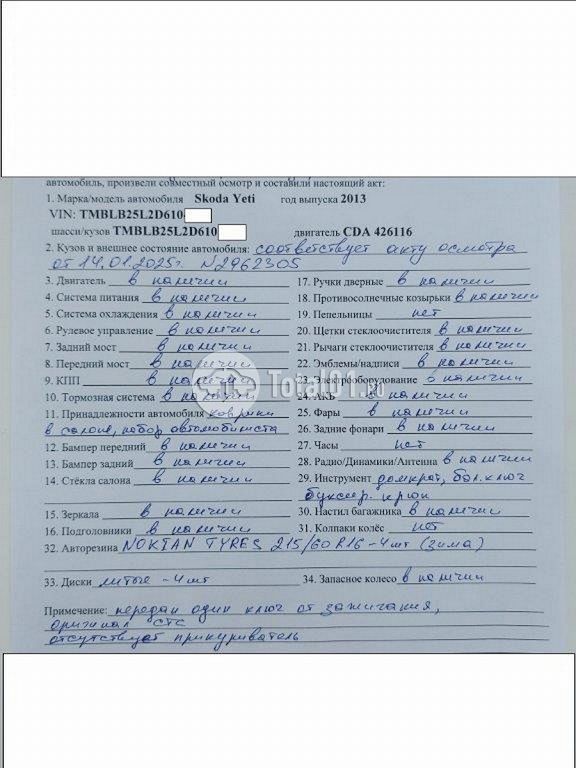 автомобиль, произвели совместный осмотр и составили настоящий акт:
1. Марка/модель автомобиля Skoda Yeti год выпуска 2013
VIN: TMBLB25L2D610
шасси/кузов TMBLB25L2D610 двигатель CDA 426116
2. Кузов и внешнее состояние автомобиля: соответствует акту осмотра
от 14.01.2025г. №2962305
3. Двигатель в наличии
4. Система питания в наличии
5. Система охлаждения в наличии
6. Рулевое управление в наличии
7. Задний мост в наличии
8. Передний мост в наличии
9. КПП в наличии
10. Тормозная система в наличии
11. Принадлежности автомобиля коврики
в салоне, набор автомобилиста
12. Бампер передний в наличии
13. Бампер задний в наличии
14. Стёкла салона в наличии
15. Зеркала в наличии
16. Подголовники в наличии
17. Ручки дверные в наличии
18. Противосолнечные козырьки в наличии
19. Пепельницы нет
20. Щетки стеклоочистителя в наличии
21. Рычаги стеклоочистителя в наличии
22. Эмблемы/надписи в наличии
23. Электрооборудование в наличии
24. АКБ в наличии
25. Фары в наличии
26. Задние фонари в наличии
27. Часы нет
28. Радио/Динамики/Антенна в наличии
29. Инструмент домкрат, бал. ключ
буксир. крюк
30. Настил багажника в наличии
31. Колпаки колёс нет
32. Авторезина NOKIAN TYRES 215/60 R16 - 4шт (зима)
33. Диски литые - 4шт
34. Запасное колесо в наличии
Примечание: передан один ключ от зажигания,
оригинал СТС
отсутствует прикуриватель
Total01.ru